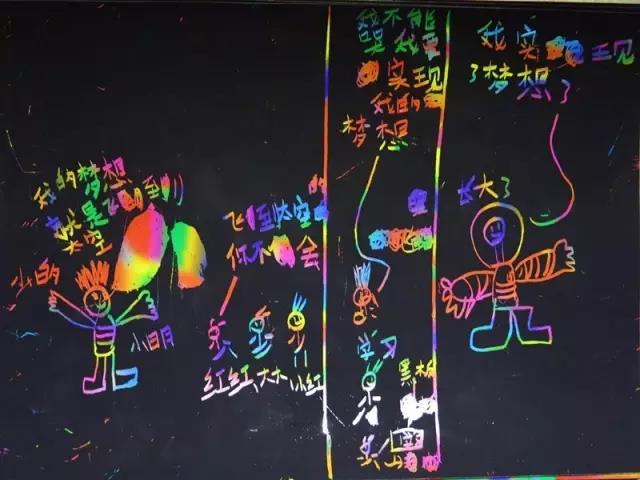 我的梦想
就是飞到
太空
小的
小明
飞到太空的
你不会
红红、大木、小红
我不能
哭我要
实现
我的
梦想
学习
黑板
我实现
了梦想了
长大了